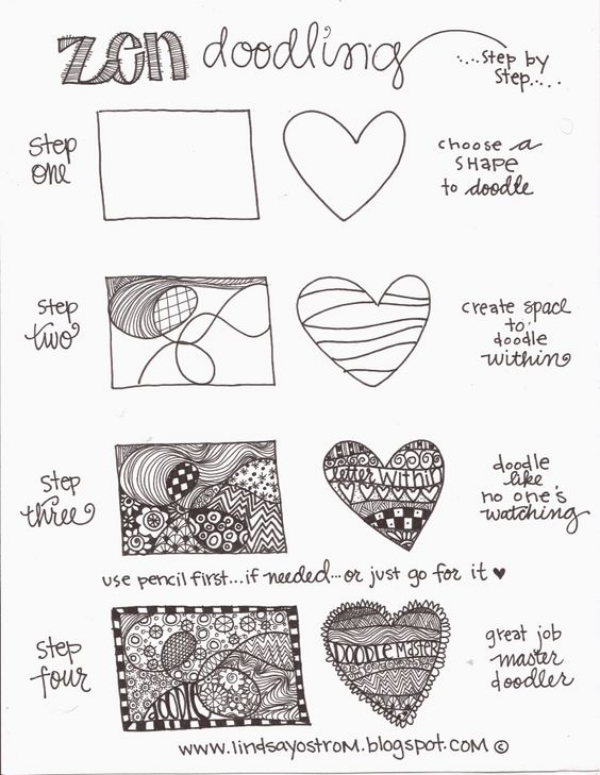 zen doodling
....step by
step....
step
one
choose a
shape
to doodle
step
two
create space
to
doodle
within
step
three
letter within
doodle
like
no one's
watching
use pencil first...if needed...or just go for it ♥
step
four
DOODLE
DOODLE MASTER
great job
master
doodler
www.lindsayostrom.blogspot.com ©